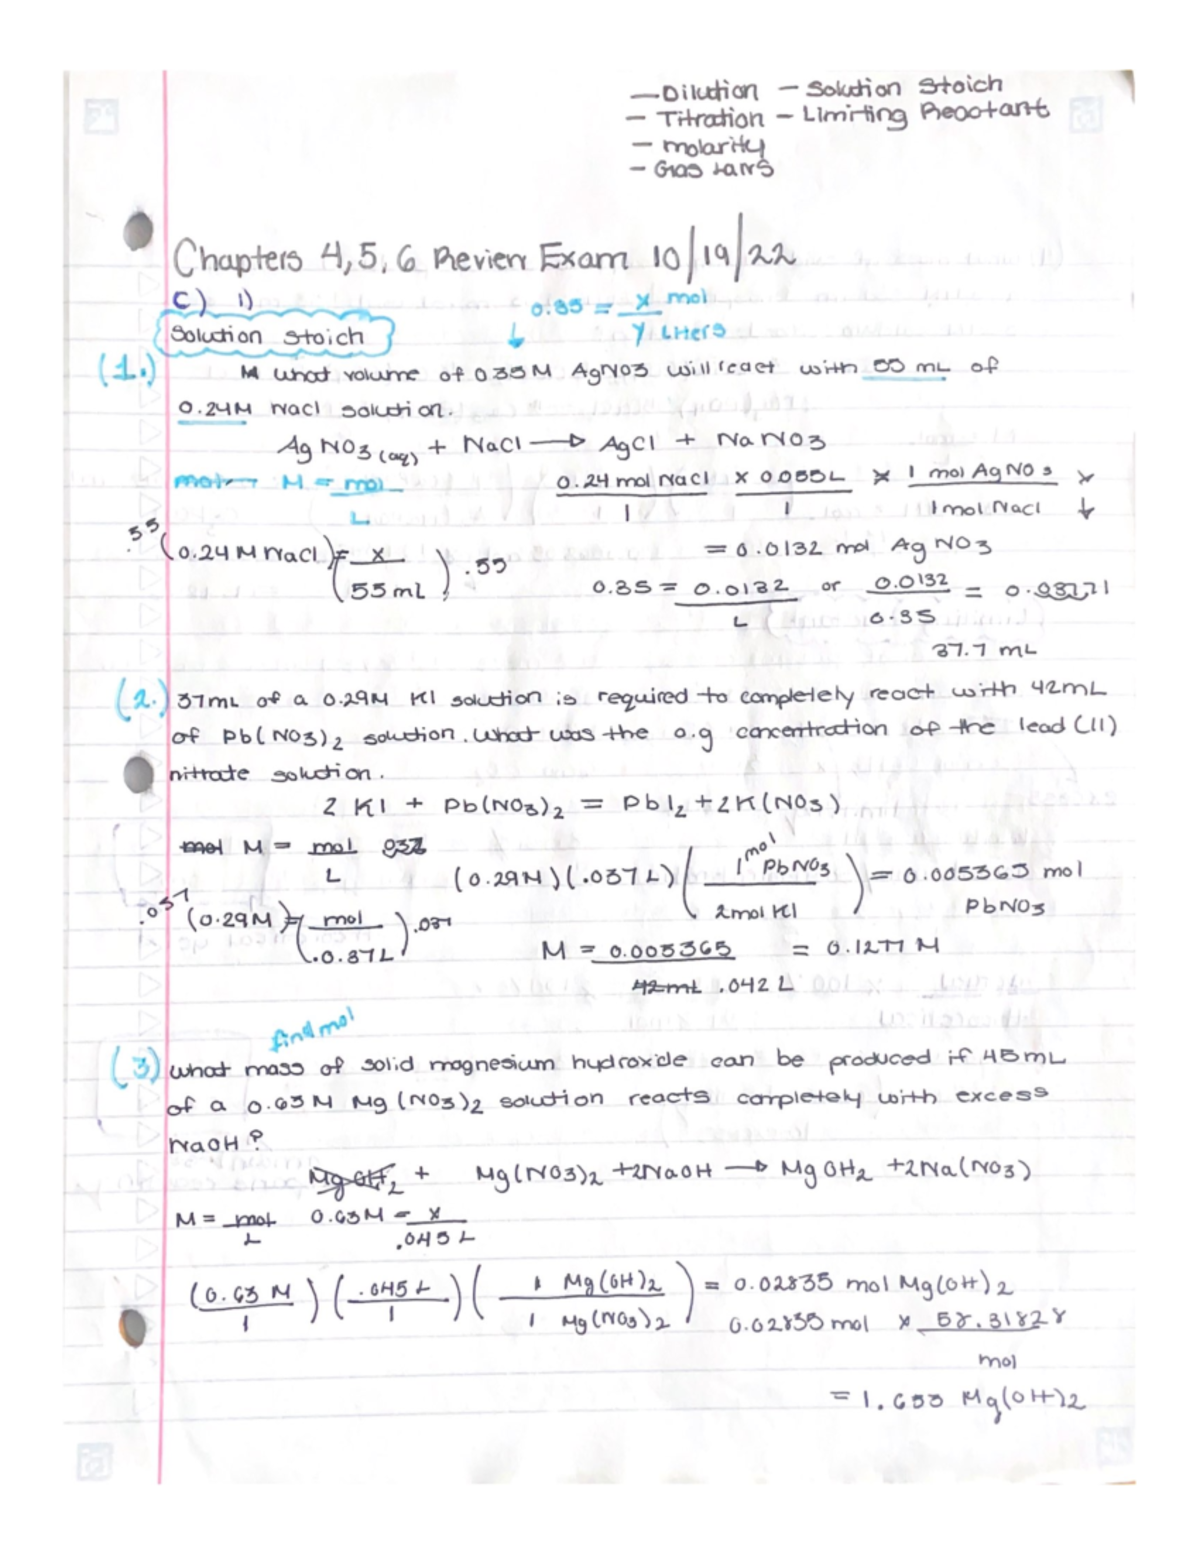 — Dilution — Solution Stoich
— Titration — Limiting Reactant
— molarity
— Gas Laws
Chapters 4, 5, 6 Review Exam 10/19/22
C) 1)
0.35 = x mol
Y Liters
Solution Stoich
(1.) What volume of 0.35M AgNO3 will react with 55 mL of
0.24M NaCl solution.
AgNO3(aq) + NaCl → AgCl + NaNO3
mol → M = mol
L
0.24 mol NaCl x 0.055L x 1 mol AgNO3 x
1 1 1 mol NaCl ↓
.55 (0.24M NaCl) = (x
55mL) .55
= 0.0132 mol AgNO3
0.35 = 0.0132 or 0.0132 = 0.03771
L 0.35
37.7 mL
(2.) 37mL of a 0.29M KI solution is required to completely react with 42mL
of Pb(NO3)2 solution. What was the o.g concentration of the lead (II)
nitrate solution.
2 KI + Pb(NO3)2 = PbI2 + 2K(NO3)
mol M = mol
L
(0.29M)(.037L)(1 mol PbNO3
2mol KI) = 0.005365 mol
PbNO3
.037 (0.29M) = (mol
.0.37L) .037
M = 0.005365 = 0.1277 M
42mL .042 L
find mol
(3) What mass of solid magnesium hydroxide can be produced if 45mL
of a 0.63M Mg(NO3)2 solution reacts completely with excess
NaOH?
MgOH2 + Mg(NO3)2 + 2NaOH → MgOH2 + 2Na(NO3)
M = mol 0.63M = x
L .045 L
(0.63 M) (.045 L) (1 Mg(OH)2) = 0.02835 mol Mg(OH)2
1 1 1 Mg(NO3)2
0.02835 mol x 58.3182g
mol
= 1.653 Mg(OH)2